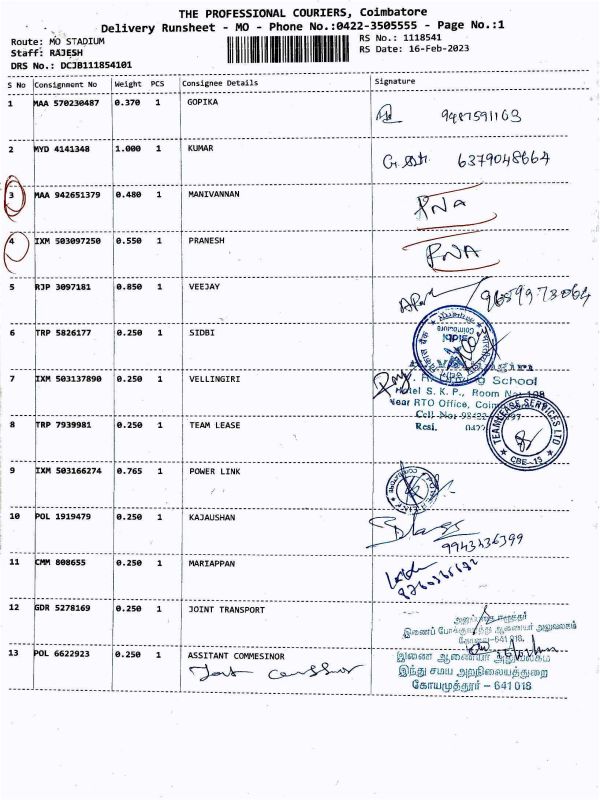 THE PROFESSIONAL COURIERS, Coimbatore
Delivery Runsheet - MO - Phone No.:0422-3505555 - Page No.:1
Route: MO STADIUM RS No.: 1118541
Staff: RAJESH RS Date: 16-Feb-2023
DRS No.: DCJB111854101
S No Consignment No Weight PCS Consignee Details Signature
1 MAA 570230487 0.370 1 GOPIKA 9487591163
2 MYD 4141348 1.000 1 KUMAR 6379048664
3 MAA 942651379 0.480 1 MANIVANNAN PNA
4 IXM 503097250 0.550 1 PRANESH PNA
5 RJP 3097181 0.850 1 VEEJAY
6 TRP 5826177 0.250 1 SIDBI
7 IXM 503137890 0.250 1 VELLINGIRI
School
Hotel S. K. P., Room No: 108
Near RTO Office,
Cell No:
Resi. 0422
8 TRP 7939981 0.250 1 TEAM LEASE
TEAMLEASE SERVICES LTD
CBE-15
9 IXM 503166274 0.765 1 POWER LINK
10 POL 1919479 0.250 1 KAJAUSHAN 9943436399
11 CMM 808655 0.250 1 MARIAPPAN
12 GDR 5278169 0.250 1 JOINT TRANSPORT
13 POL 6622923 0.250 1 ASSITANT COMMESINOR
இணை ஆணையர் அலுவலகம்
இந்து சமய அறநிலையத்துறை
கோயமுத்தூர் – 641 018